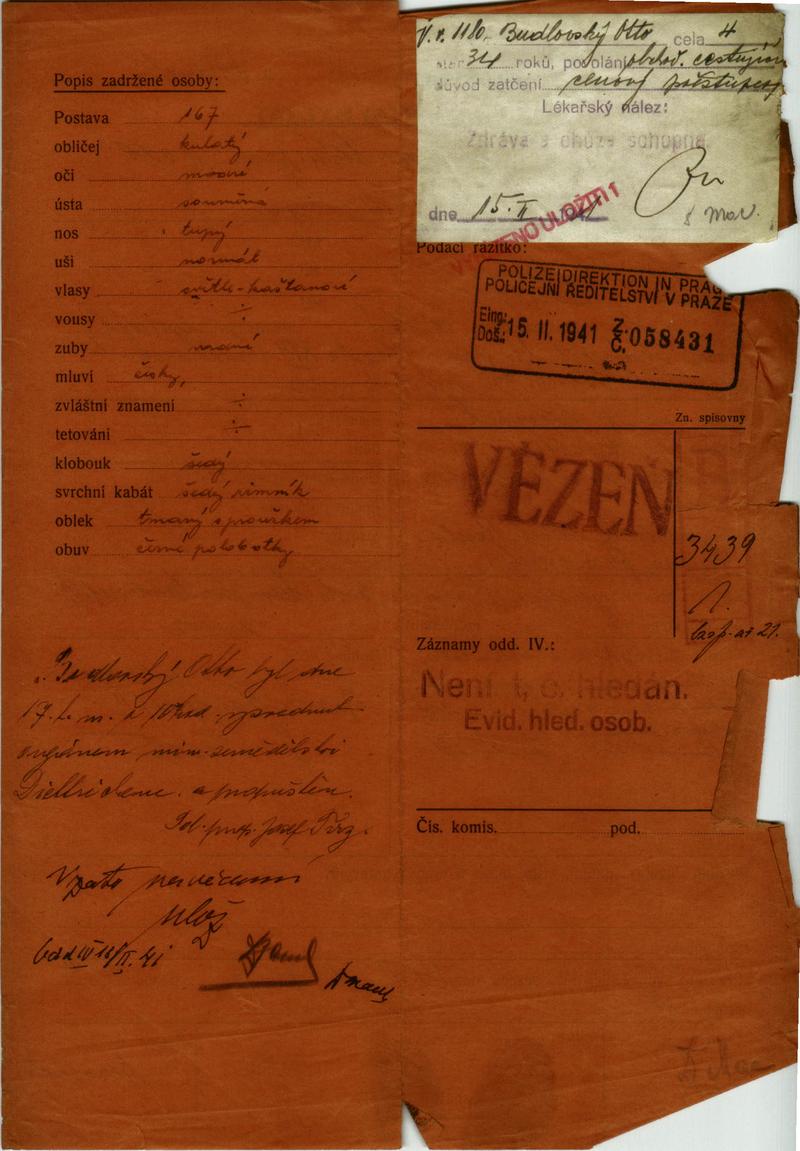 Popis zadržené osoby:
Postava 167
obličej kulatý
oči modré
ústa souměrná
nos tupý
uši normál
vlasy světle-kaštanové
vousy ÷
zuby
mluví česky,
zvláštní znamení ÷
tetování ÷
klobouk šedý
svrchní kabát šedý zimník
oblek tmavý s proužkem
obuv černé polobotky
Budlovský Otto byl dne
17. t. m. v 10 hod.
orgánem min. zemědělství
a propuštěn.
Josef
Vzato na vědomí
18/II. 41
V. v. 1180. Budlovský Otto cela 4
34 roků, povolání obchod. cestující
důvod zatčení cenový přestupek
Lékařský nález:
Zdráva a chůze schopna.
dne 15. II
ULOŽITI 1
Podací razítko:
POLIZEIDIREKTION IN PRAG
POLICEJNÍ ŘEDITELSTVÍ V PRAZE
Eing.:
Doš.: 15. II. 1941 Z. Č. 058431
Zn. spisovny
VĚZEŇ
3439
1.
Záznamy odd. IV.:
Není t. č. hledán.
Evid. hled. osob.
Čís. komis. pod.